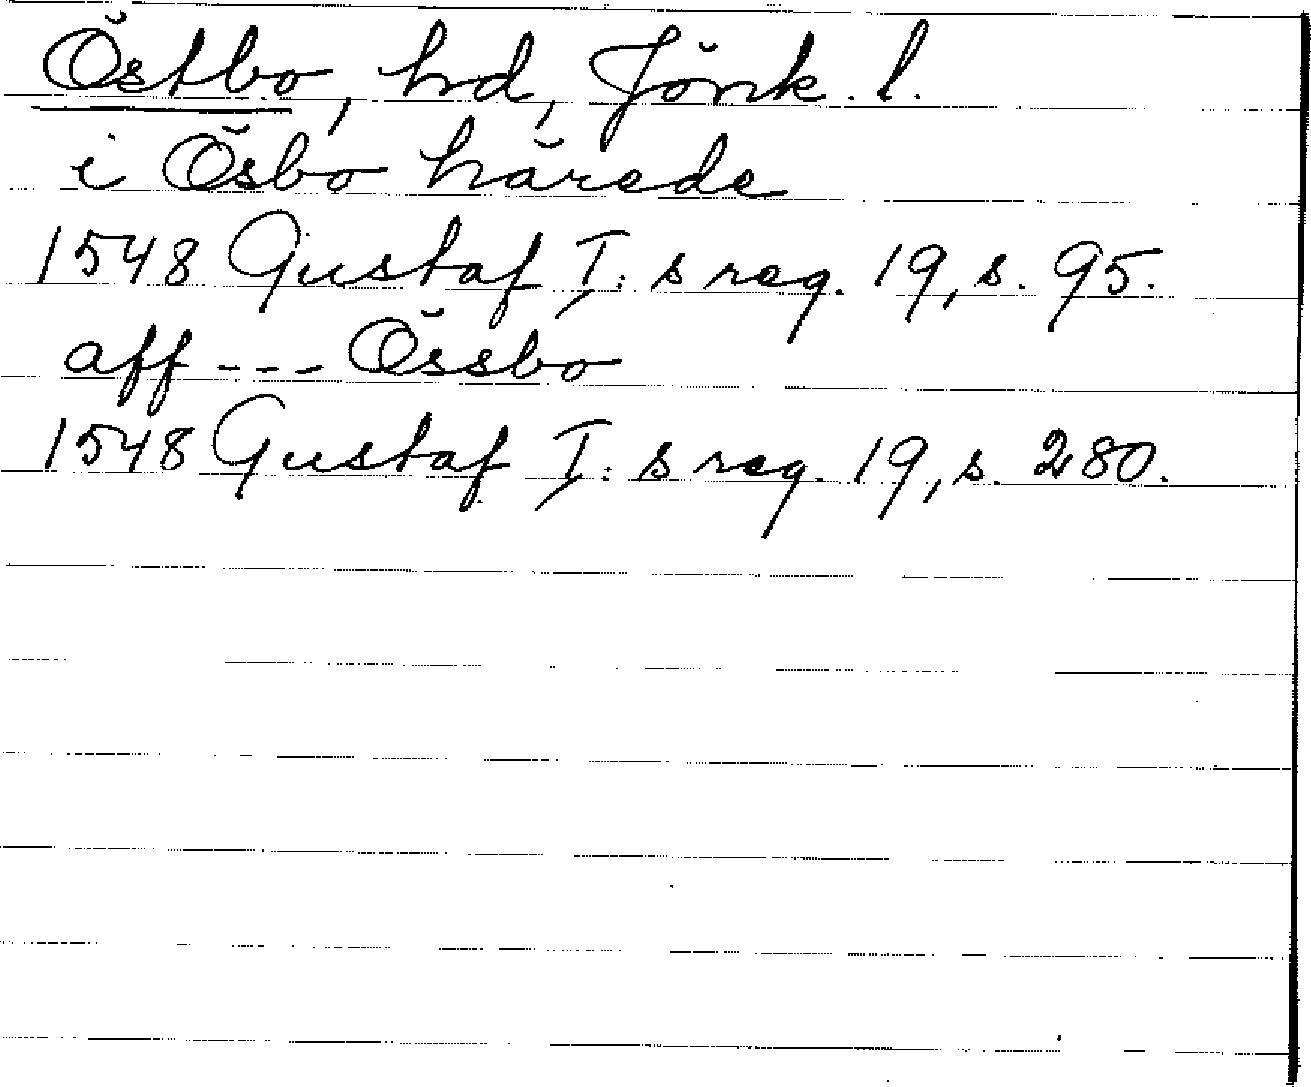 Östbo, hd, Jönk. l.
i Ösbo härede
1548 Gustaf I:s reg. 19, s. 95.
aff --- Össbo
1548 Gustaf I:s reg. 19, s. 280.